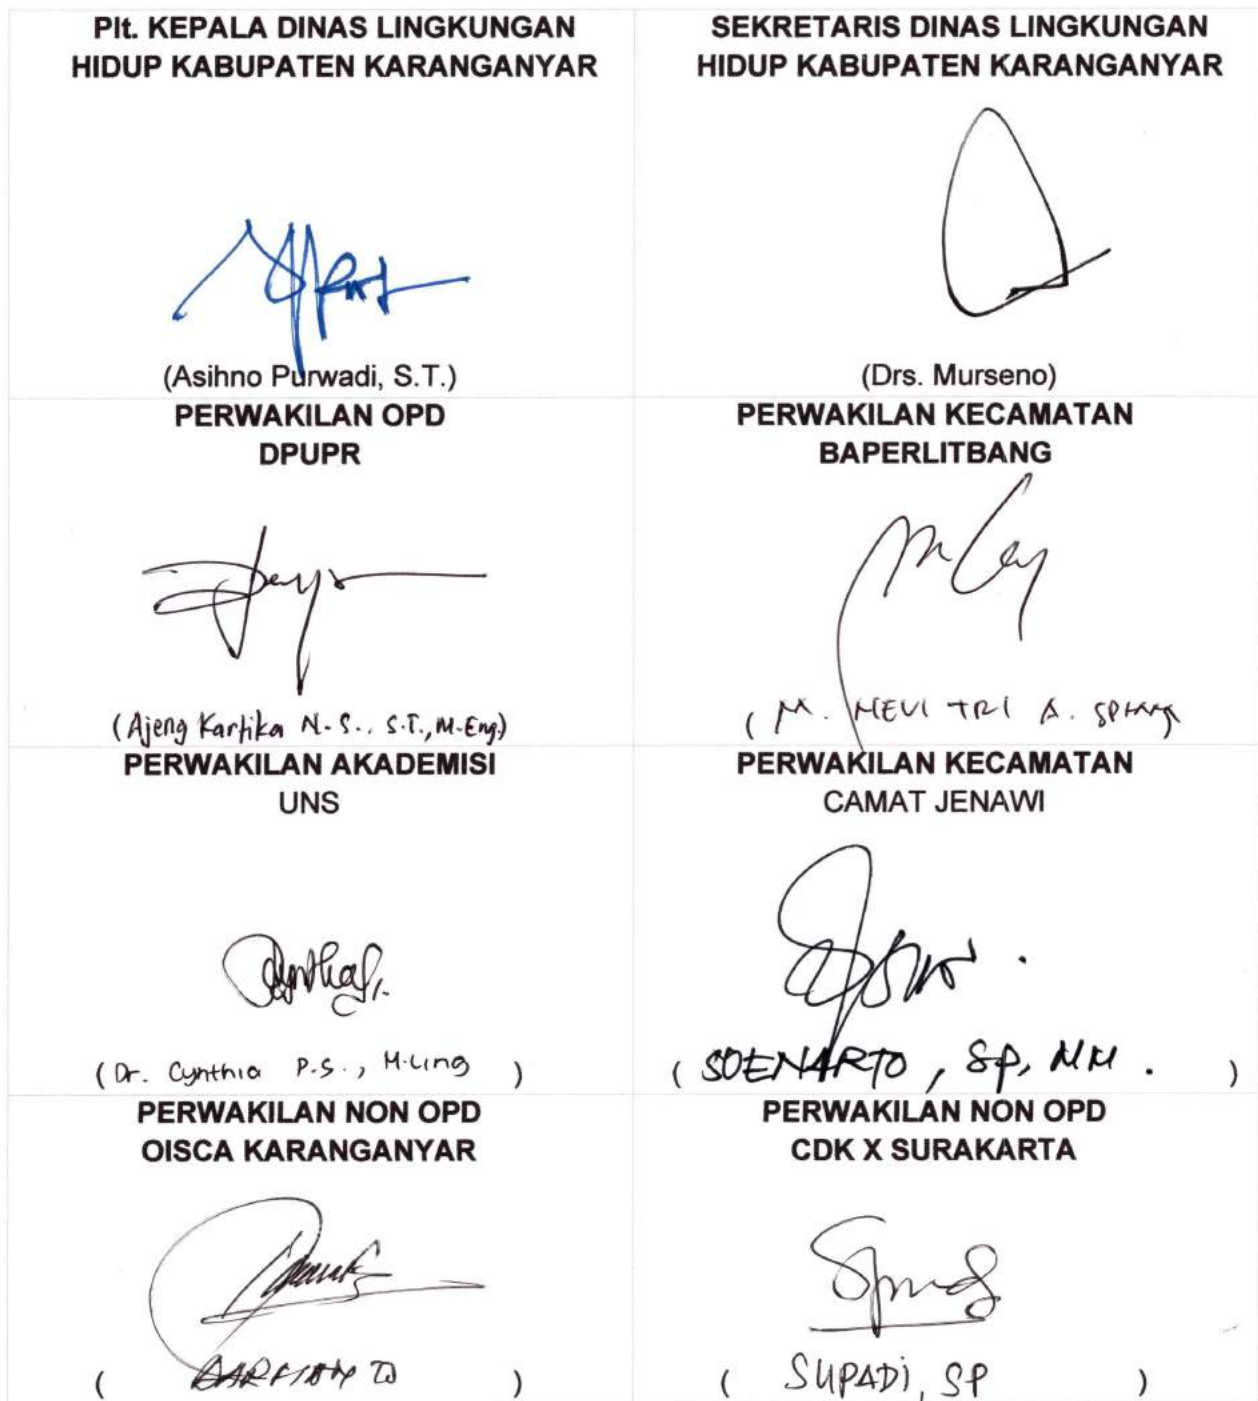 Plt. KEPALA DINAS LINGKUNGAN
HIDUP KABUPATEN KARANGANYAR
(Asihno Purwadi, S.T.)
SEKRETARIS DINAS LINGKUNGAN
HIDUP KABUPATEN KARANGANYAR
(Drs. Murseno)
PERWAKILAN OPD
DPUPR
(Ajeng Kartika N.S., S.T., M.Eng)
PERWAKILAN KECAMATAN
BAPERLITBANG
( M. MEVI TRI A.
PERWAKILAN AKADEMISI
UNS
(Dr. Cynthia P.S., M.Ling )
PERWAKILAN KECAMATAN
CAMAT JENAWI
( SOENARTO, SP, MM. )
PERWAKILAN NON OPD
OISCA KARANGANYAR
( )
PERWAKILAN NON OPD
CDK X SURAKARTA
( SUPADI, SP )